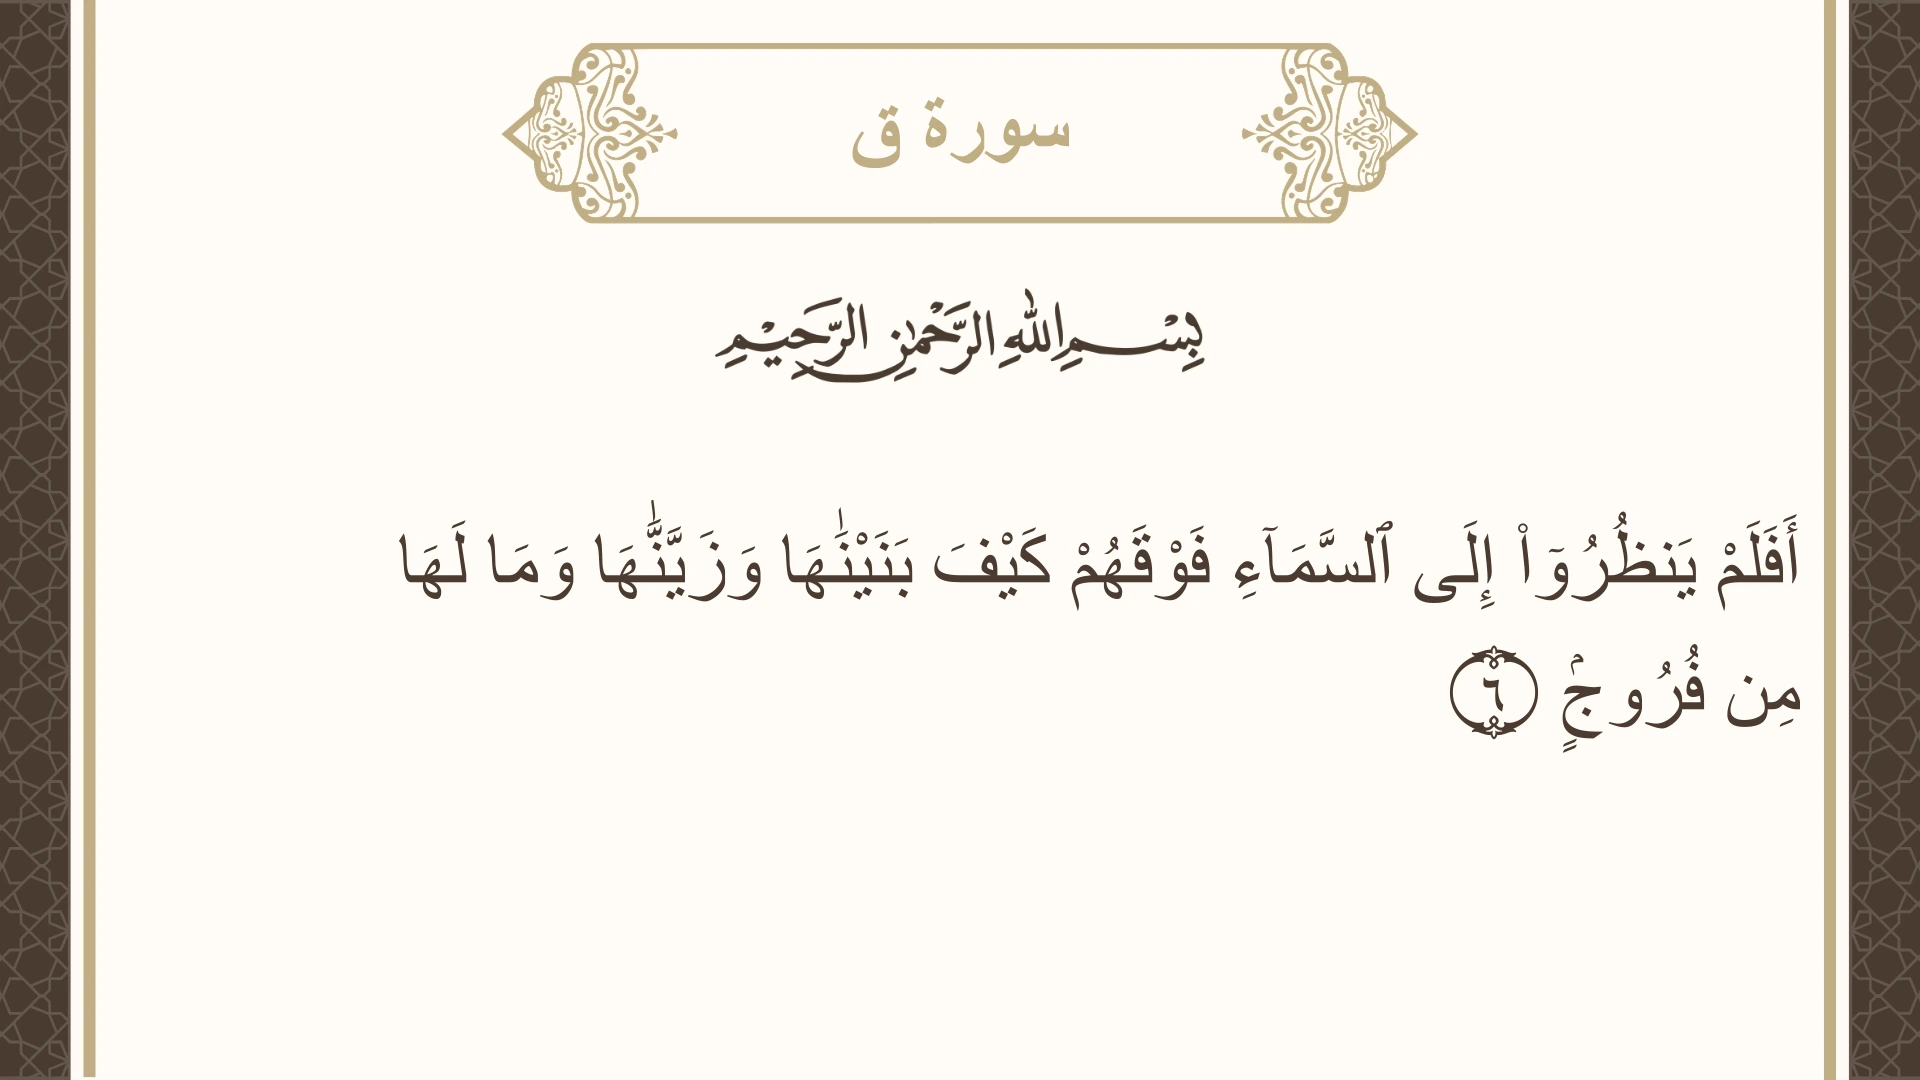 سورة ق
بِسْمِ اللهِ الرَّحْمٰنِ الرَّحِيْمِ
أَفَلَمْ يَنظُرُوٓا۟ إِلَى ٱلسَّمَآءِ فَوْقَهُمْ كَيْفَ بَنَيْنَٰهَا وَزَيَّنَّٰهَا وَمَا لَهَا
مِن فُرُوجٍۢ ٦